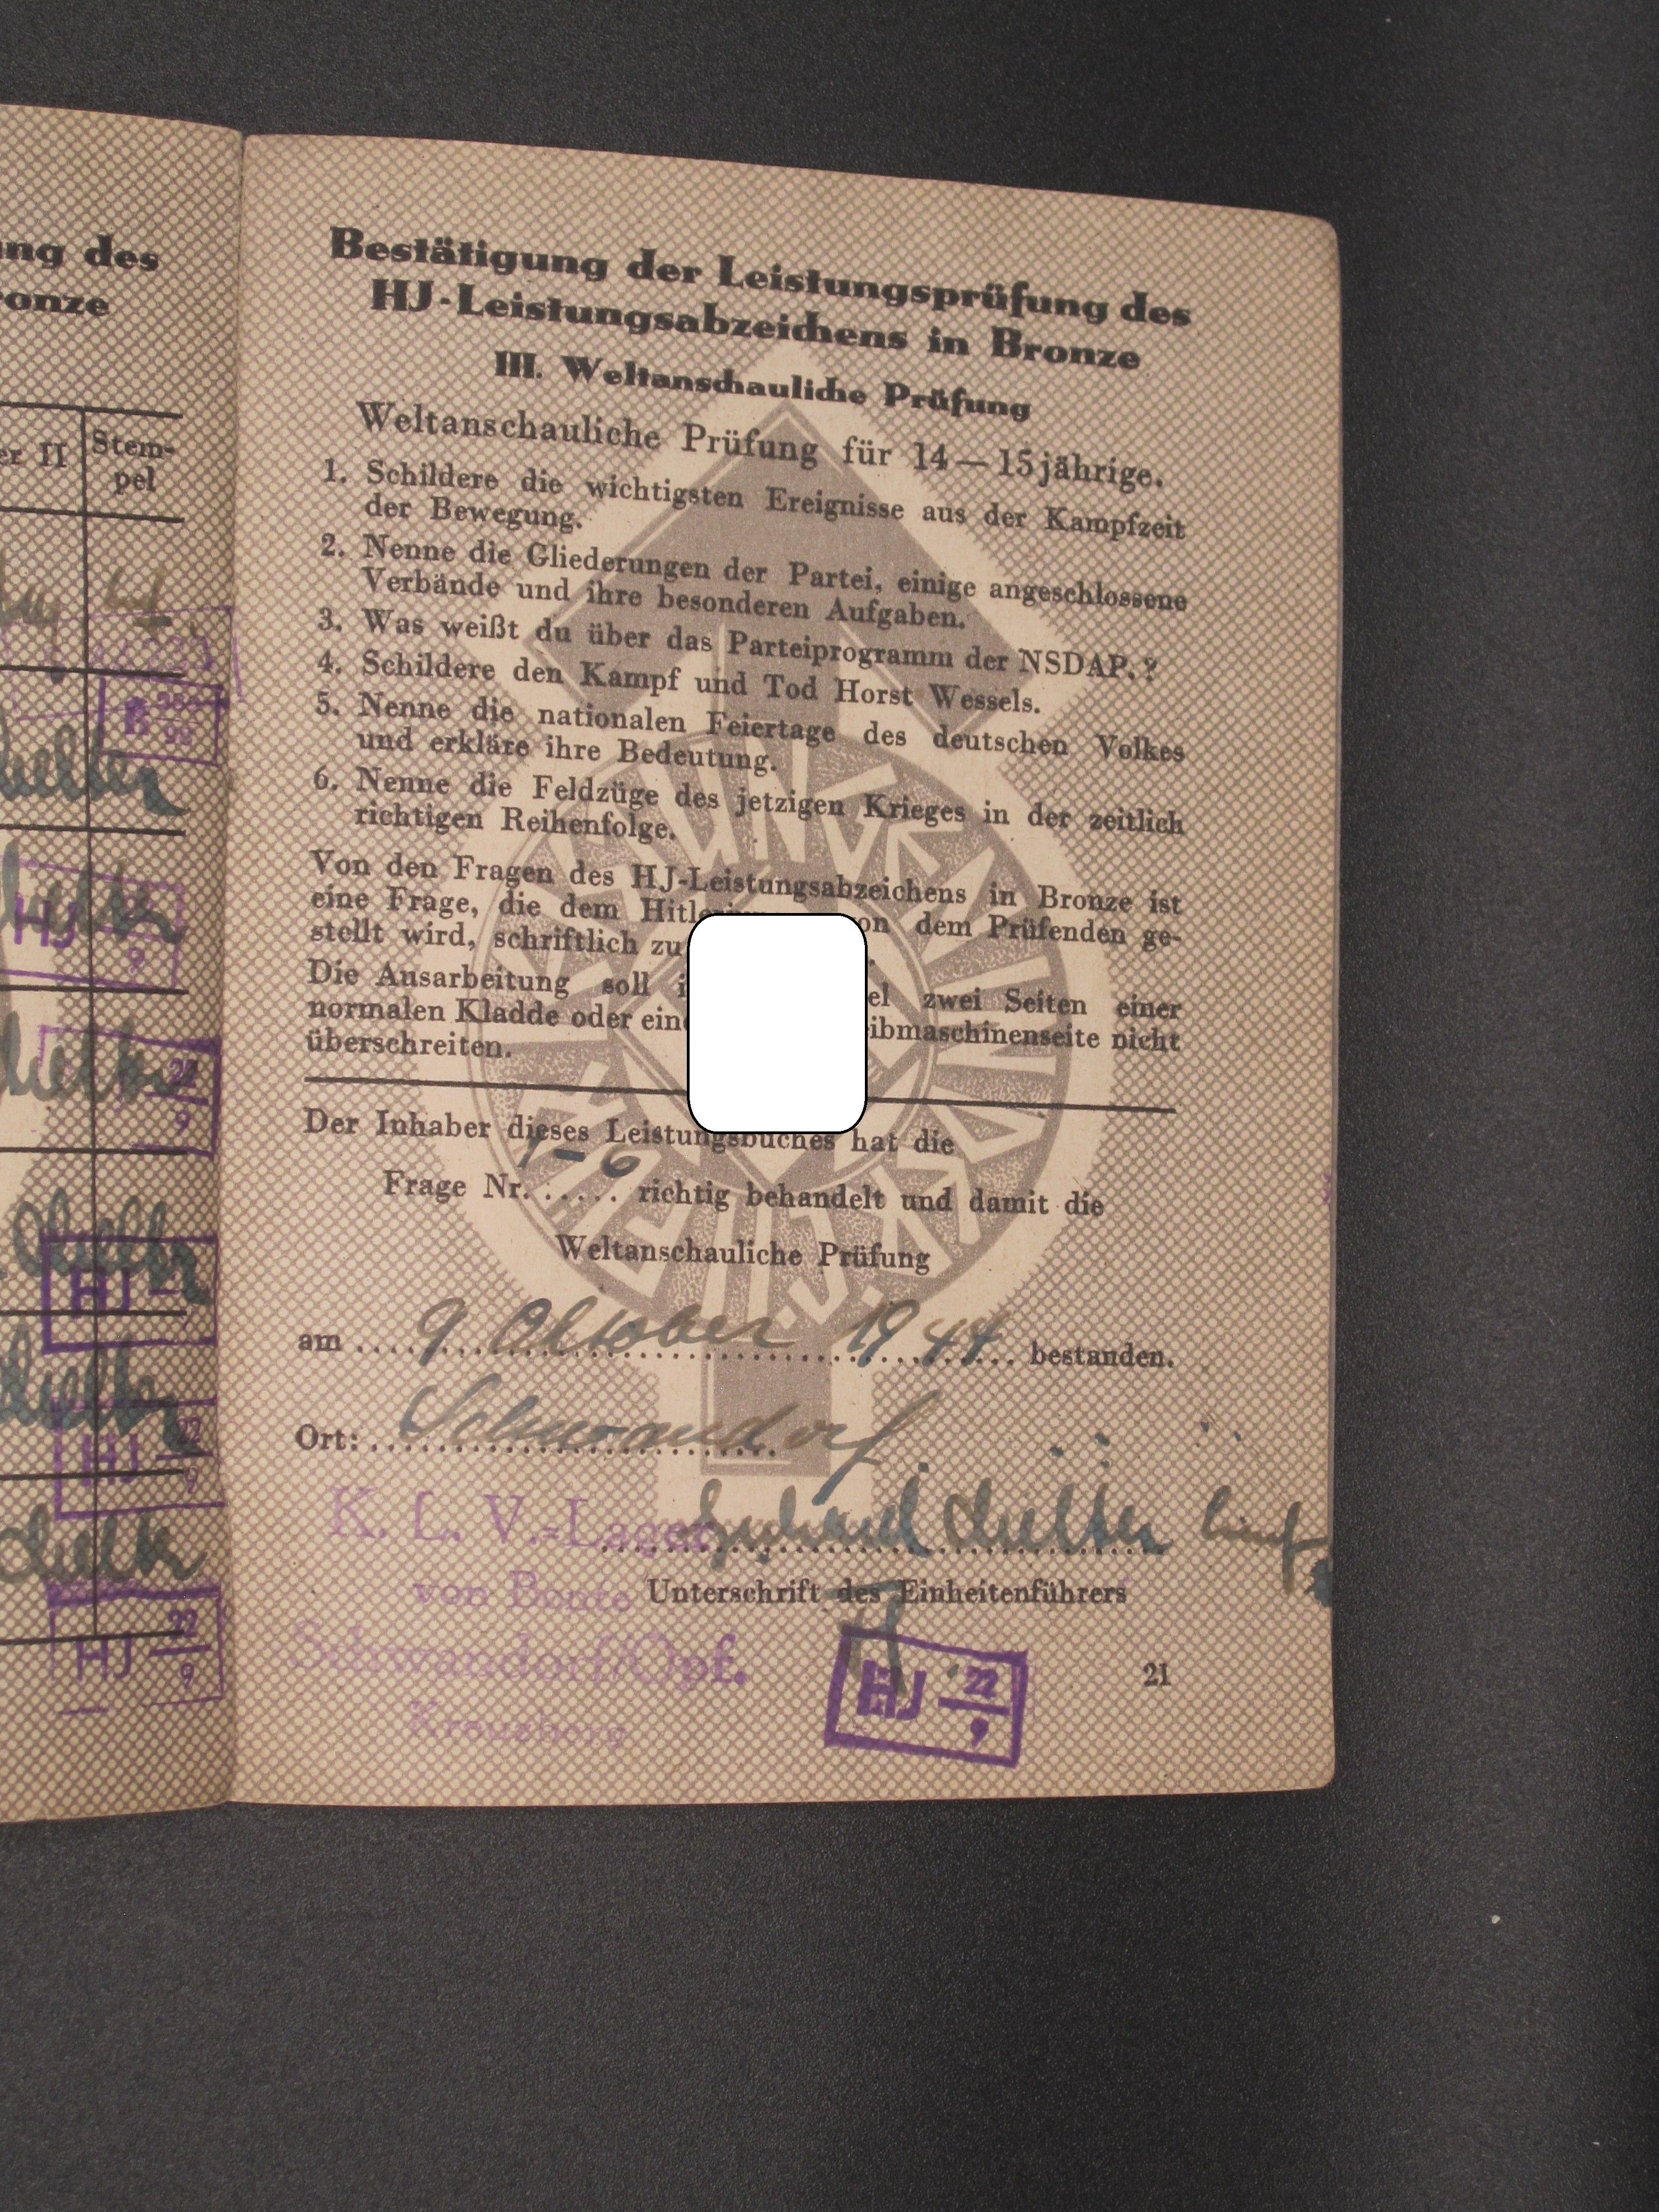 ung des
ronze
er II
Stem-
pel
HJ
9
22
9
HJ
HJ 22
9
HJ 22
9
Bestätigung der Leistungsprüfung des
HJ-Leistungsabzeichens in Bronze
III. Weltanschauliche Prüfung
Weltanschauliche Prüfung für 14—15jährige.
1. Schildere die wichtigsten Ereignisse aus der Kampfzeit
der Bewegung.
2. Nenne die Gliederungen der Partei, einige angeschlossene
Verbände und ihre besonderen Aufgaben.
3. Was weißt du über das Parteiprogramm der NSDAP.?
4. Schildere den Kampf und Tod Horst Wessels.
5. Nenne die nationalen Feiertage des deutschen Volkes
und erkläre ihre Bedeutung.
6. Nenne die Feldzüge des jetzigen Krieges in der zeitlich
richtigen Reihenfolge.
Von den Fragen des HJ-Leistungsabzeichens in Bronze ist
eine Frage, die dem Hitler on dem Prüfenden ge-
stellt wird, schriftlich zu .
Die Ausarbeitung soll i el zwei Seiten einer
normalen Kladde oder eine ibmaschinenseite nicht
überschreiten.
Der Inhaber dieses Leistungsbuches hat die
1-6
Frage Nr. ..... richtig behandelt und damit die
Weltanschauliche Prüfung
am 9 Oktober 1944 bestanden.
Ort: Schwandorf
K. L. V.=Lager
von Bonte Unterschrift des Einheitenführers
Schwandorf/Opf.
Kreuzberg
HJ 22
9
21